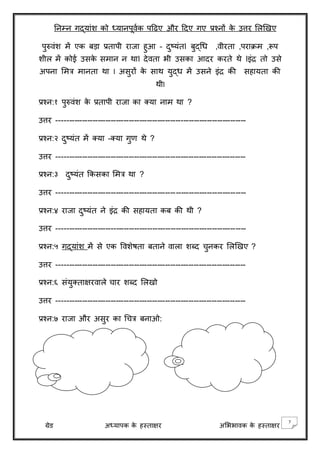 निम्न गद्यांश को ध्यानपूर्वक पढ़िए और दिए गए प्रश्नों के उत्तर लिखिए
पुरुवंश में एक बड़ा प्रतापी राजा हुआ - दुष्यंत। बुद्धि ,वीरता ,पराक्रम ,रूप
शील में कोई उसके समान न था। देवता भी उसका आदर करते थे ।इंद्र तो उसे
अपना मित्र मानता था । असुरों के साथ युद्ध में उसने इंद्र की सहायता की
थी।
प्रश्न:१ पुरुवंश के प्रतापी राजा का क्या नाम था ?
उत्तर -----------------------------------------------------------------------
प्रश्न:२ दुष्यंत में क्या -क्या गुण थे ?
उत्तर -----------------------------------------------------------------------
प्रश्न:३ दुष्यंत किसका मित्र था ?
उत्तर -----------------------------------------------------------------------
प्रश्न:४ राजा दुष्यंत ने इंद्र की सहायता कब की थी ?
उत्तर -----------------------------------------------------------------------
प्रश्न:५ गद्यांश में से एक विशेषता बताने वाला शब्द चुनकर लिखिए ?
उत्तर -----------------------------------------------------------------------
प्रश्न:६ संयुक्ताक्षरवाले चार शब्द लिखो
उत्तर -----------------------------------------------------------------------
प्रश्न:७ राजा और असुर का चित्र बनाओ:
ग्रेड अध्यापक के हस्ताक्षर अभिभावक के हस्ताक्षर 7